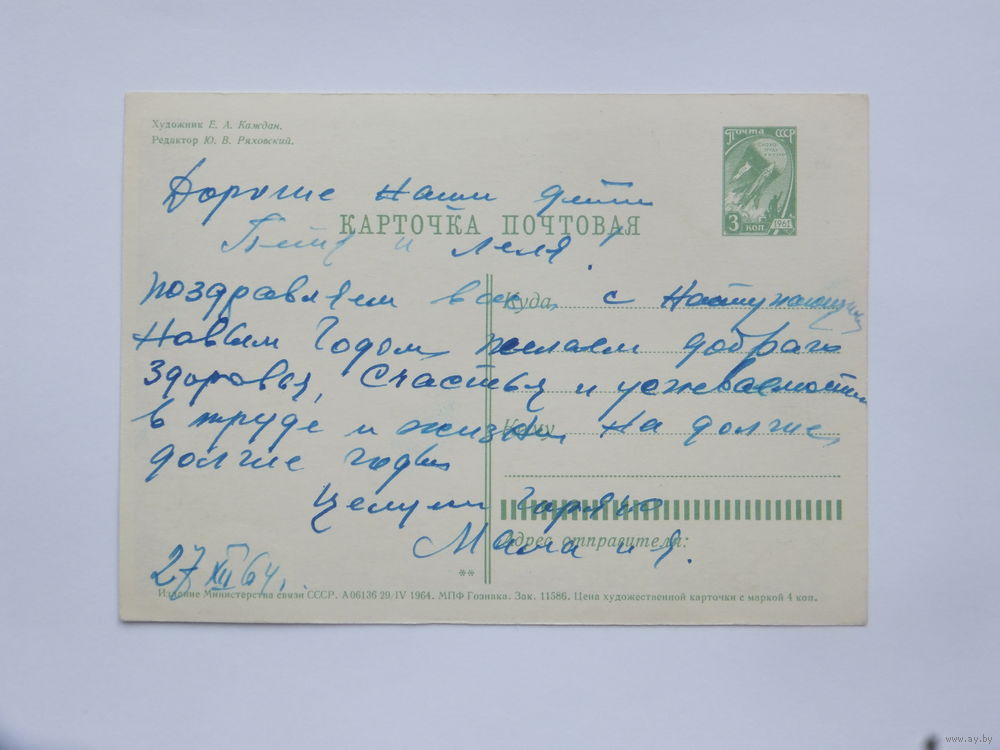 Художник Е. А. Каждан.
Редактор Ю. В. Ряховский.
ПОЧТА СССР
3 КОП. 1961
Дорогие наши дети
КАРТОЧКА ПОЧТОВАЯ
Петя и Леля!
поздравляем вас с Наступающим
Куда
Новым Годом, желаем доброго
Здоровья, Счастья и успеваемости
в труде и жизни на долгие,
Кому
долгие годы
Целуем горячо
Мама и я.
Адрес отправителя:
27 XII 64 г.
**
Издание Министерства связи СССР. А 06136 29/IV 1964. МПФ Гознака. Зак. 11586. Цена художественной карточки с маркой 4 коп.
www.ay.by